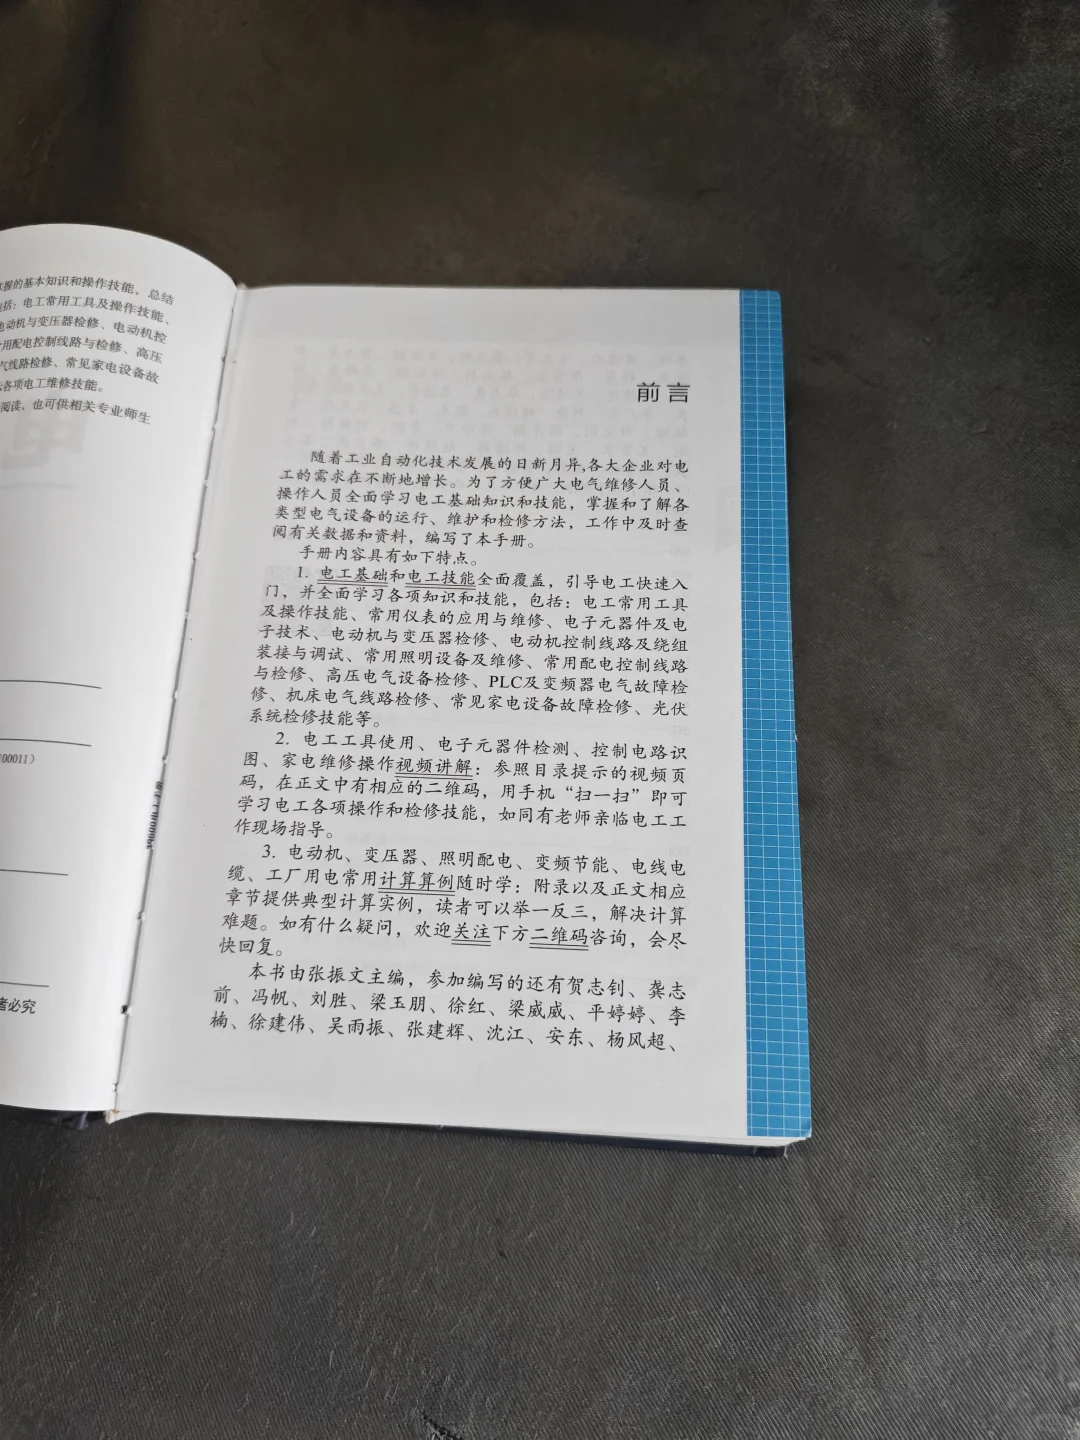 握的基本知识和操作技能，总结
括：电工常用工具及操作技能、
电动机与变压器检修、电动机控
用配电控制线路与检修、高压
气线路检修、常见家电设备故
各项电工维修技能。
阅读，也可供相关专业师生
电
100011）
者必究
前言
随着工业自动化技术发展的日新月异,各大企业对电
工的需求在不断地增长。为了方便广大电气维修人员、
操作人员全面学习电工基础知识和技能，掌握和了解各
类型电气设备的运行、维护和检修方法，工作中及时查
阅有关数据和资料，编写了本手册。
手册内容具有如下特点。
1. 电工基础和电工技能全面覆盖，引导电工快速入
门，并全面学习各项知识和技能，包括：电工常用工具
及操作技能、常用仪表的应用与维修、电子元器件及电
子技术、电动机与变压器检修、电动机控制线路及绕组
装接与调试、常用照明设备及维修、常用配电控制线路
与检修、高压电气设备检修、PLC及变频器电气故障检
修、机床电气线路检修、常见家电设备故障检修、光伏
系统检修技能等。
2. 电工工具使用、电子元器件检测、控制电路识
图、家电维修操作视频讲解：参照目录提示的视频页
码，在正文中有相应的二维码，用手机“扫一扫”即可
学习电工各项操作和检修技能，如同有老师亲临电工工
作现场指导。
3. 电动机、变压器、照明配电、变频节能、电线电
缆、工厂用电常用计算算例随时学：附录以及正文相应
章节提供典型计算实例，读者可以举一反三，解决计算
难题。如有什么疑问，欢迎关注下方二维码咨询，会尽
快回复。
本书由张振文主编，参加编写的还有贺志钊、龚志
前、冯帆、刘胜、梁玉朋、徐红、梁威威、平婷婷、李
楠、徐建伟、吴雨振、张建辉、沈江、安东、杨风超、